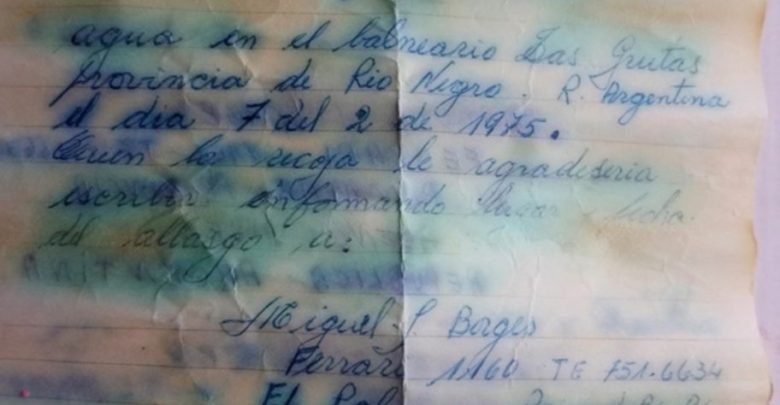 agua en el balneario Las Grutas
Provincia de Rio Negro. R. Argentina
el dia 7 del 2 de 1975.
Quien la recoja le agradeseria
escribir informando lugar fecha
del allasgo a:
Miguel Borges
Ferrari 1160 TE 751.6634
El